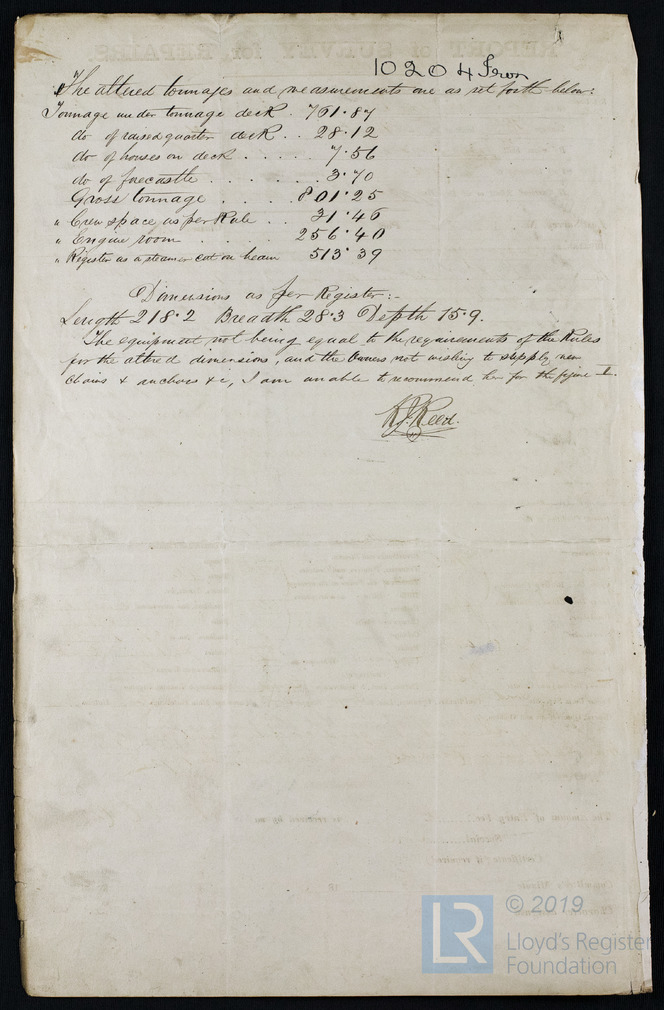 10204 Iron
The altered tonnages and measurements are as set forth below:
Tonnage under tonnage deck . 761.87
do of raised quarter deck . . 28.12
do of houses on deck . . . . . 7.56
do of forecastle . . . . . . 3.70
Gross tonnage . . . . . 801.25
" Crew space as per Rule . . 31.46
" Engine room . . . . 256.40
" Register as a steamer cut on beam 513.39
Dimensions as per Register:-
Length 218.2 Breadth 28.3 Depth 15.9.
The equipment not being equal to the requirements of the Rules
for the altered dimensions, and the Owners not wishing to supply new
Chains & anchors &c, I am unable to recommend her for the figure 1.
Reed.
LR
© 2019
Lloyd's Register
Foundation